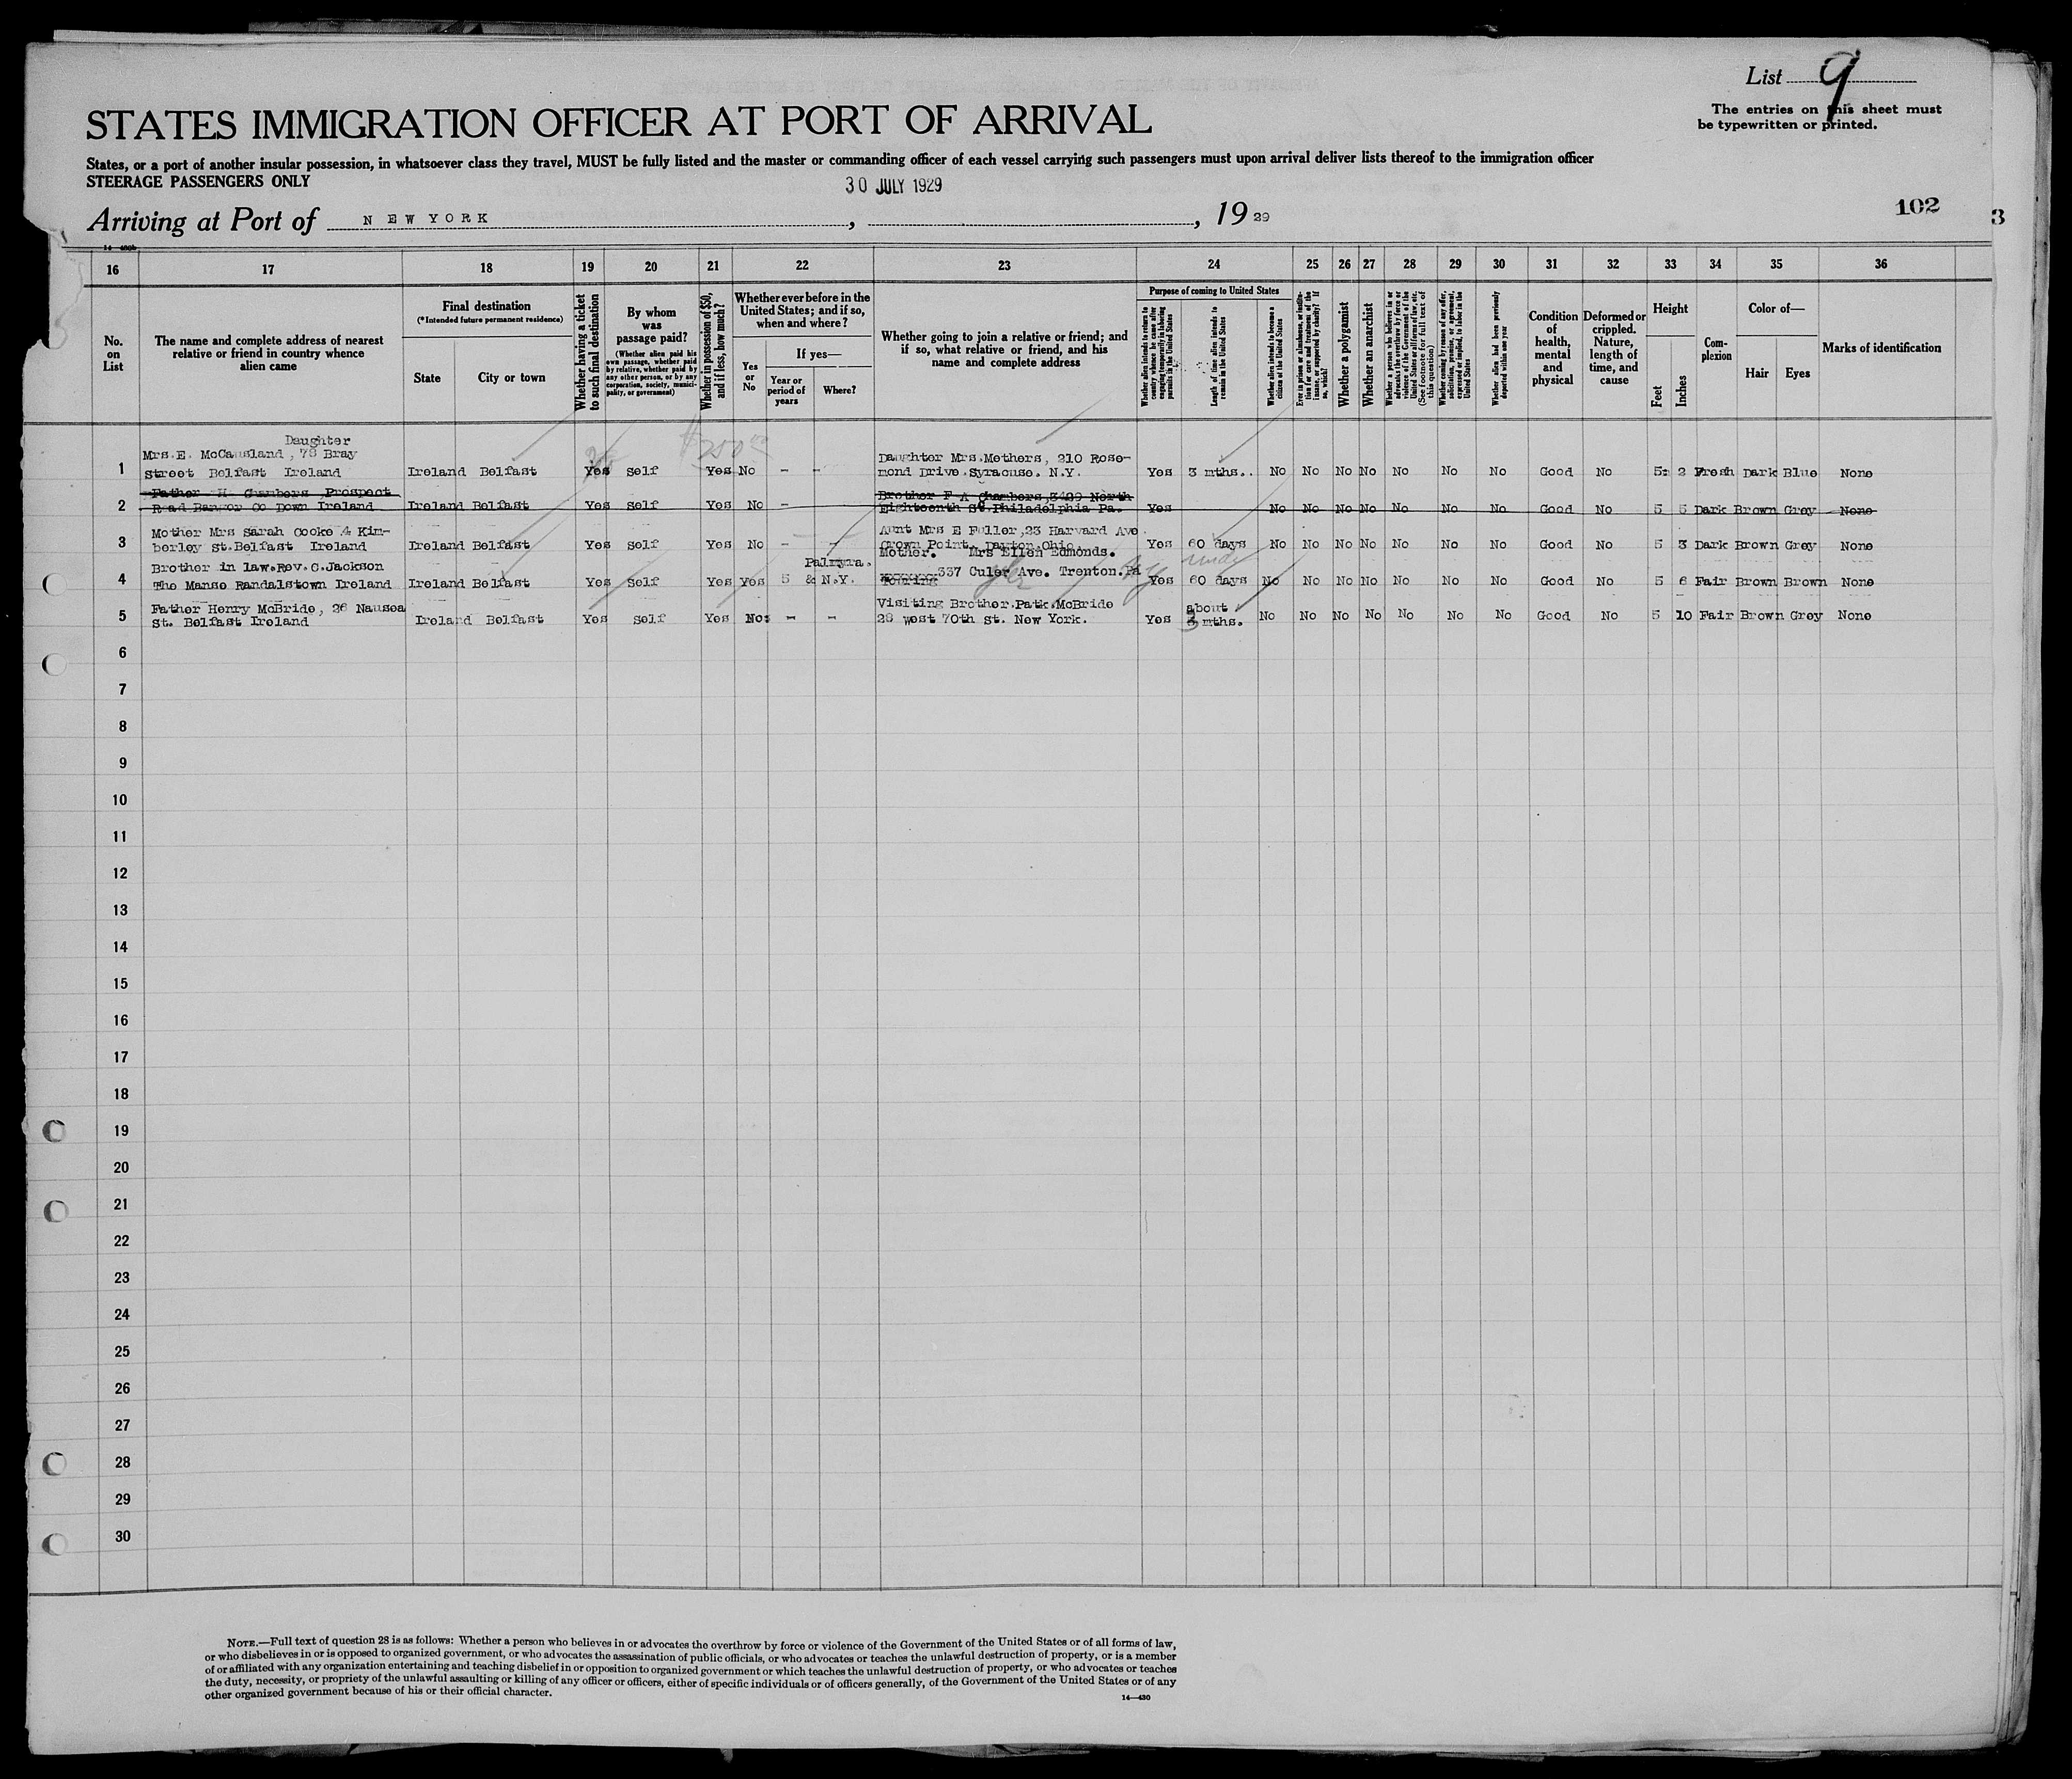 List 9
The entries on this sheet must
be typewritten or printed.
STATES IMMIGRATION OFFICER AT PORT OF ARRIVAL
States, or a port of another insular possession, in whatsoever class they travel, MUST be fully listed and the master or commanding officer of each vessel carrying such passengers must upon arrival deliver lists thereof to the immigration officer
STEERAGE PASSENGERS ONLY
30 JULY 1929
102
3
Arriving at Port of NEW YORK , , 19 29
16 17 18 19 20 21 22 23 24 25 26 27 28 29 30 31 32 33 34 35 36
No.
on
List
The name and complete address of nearest
relative or friend in country whence
alien came
Final destination
(*Intended future permanent residence)
State
City or town
Whether having a ticket
to such final destination
By whom
was
passage paid?
(Whether alien paid his
own passage, whether paid
by relative, whether paid by
any other person, or by any
corporation, society, munici-
pality, or government)
Whether in possession of $50,
and if less, how much?
Whether ever before in the
United States; and if so,
when and where?
Yes
or
No
If yes—
Year or
period of
years
Where?
Whether going to join a relative or friend; and
if so, what relative or friend, and his
name and complete address
Purpose of coming to United States
Whether alien intends to return to
country whence he came after
engaging temporarily in laboring
pursuits in the United States
Length of time alien intends to
remain in the United States
Whether alien intends to become a
citizen of the United States
Ever in prison or almshouse, or institu-
tion for care and treatment of the
insane, or supported by charity? If
so, which?
Whether a polygamist
Whether an anarchist
Whether a person who believes in or
advocates the overthrow by force or
violence of the Government of the
United States or all forms of law, etc.
(See footnote for full text of
this question)
Whether coming by reason of any offer,
solicitation, promise, or agreement,
expressed or implied, to labor in the
United States
Whether alien had been previously
deported within one year
Condition
of
health,
mental
and
physical
Deformed or
crippled.
Nature,
length of
time, and
cause
Height
Feet
Inches
Com-
plexion
Color of—
Hair
Eyes
Marks of identification
$250
Daughter
Mrs.E. McCausland , 78 Bray
Daughter Mrs.Methers, 210 Rose-
1 Street Belfast Ireland Ireland Belfast Yes Self Yes No - - mond Drive.Syracuse. N.Y. Yes 3 mths.. No No No No No No No Good No 5 2 Fresh Dark Blue None
Father H Chambers Prospect
Brother F A Chambers,3429 North
2 Road Bangor Co Down Ireland Ireland Belfast Yes Self Yes No - Eighteenth St Philadelphia Pa. Yes No No No No No No No Good No 5 5 Dark Brown Grey None
Mother Mrs Sarah Cooke 4 Kim-
Aunt Mrs E Fuller,23 Harvard Ave
3 berley St.Belfast Ireland Ireland Belfast Yes Self Yes No - - Crown Point. Dayton Ohio. Yes 60 days No No No No No No No Good No 5 3 Dark Brown Grey None
Brother in law.Rev.C.Jackson
Palmyra.
Mother. Mrs Ellen Edmonds.
4 The Manse Randalstown Ireland Ireland Belfast Yes Self Yes Yes 5 & N.Y. 337 Culer Ave. Trenton.Pa Yes 60 days No No No No No No No Good No 5 6 Fair Brown Brown None
Father Henry McBride, 26 Nausea
Visiting Brother.Patk.McBride
about
5 St. Belfast Ireland Ireland Belfast Yes Self Yes No: - - 28 west 70th st. New York. Yes 3 mths. No No No No No No No Good No 5 10 Fair Brown Grey None
6
7
8
9
10
11
12
13
14
15
16
17
18
19
20
21
22
23
24
25
26
27
28
29
30
NOTE.—Full text of question 28 is as follows: Whether a person who believes in or advocates the overthrow by force or violence of the Government of the United States or of all forms of law,
or who disbelieves in or is opposed to organized government, or who advocates the assassination of public officials, or who advocates or teaches the unlawful destruction of property, or is a member
of or affiliated with any organization entertaining and teaching disbelief in or opposition to organized government or which teaches the unlawful destruction of property, or who advocates or teaches
the duty, necessity, or propriety of the unlawful assaulting or killing of any officer or officers, either of specific individuals or of officers generally, of the Government of the United States or of any
other organized government because of his or their official character.
14—430